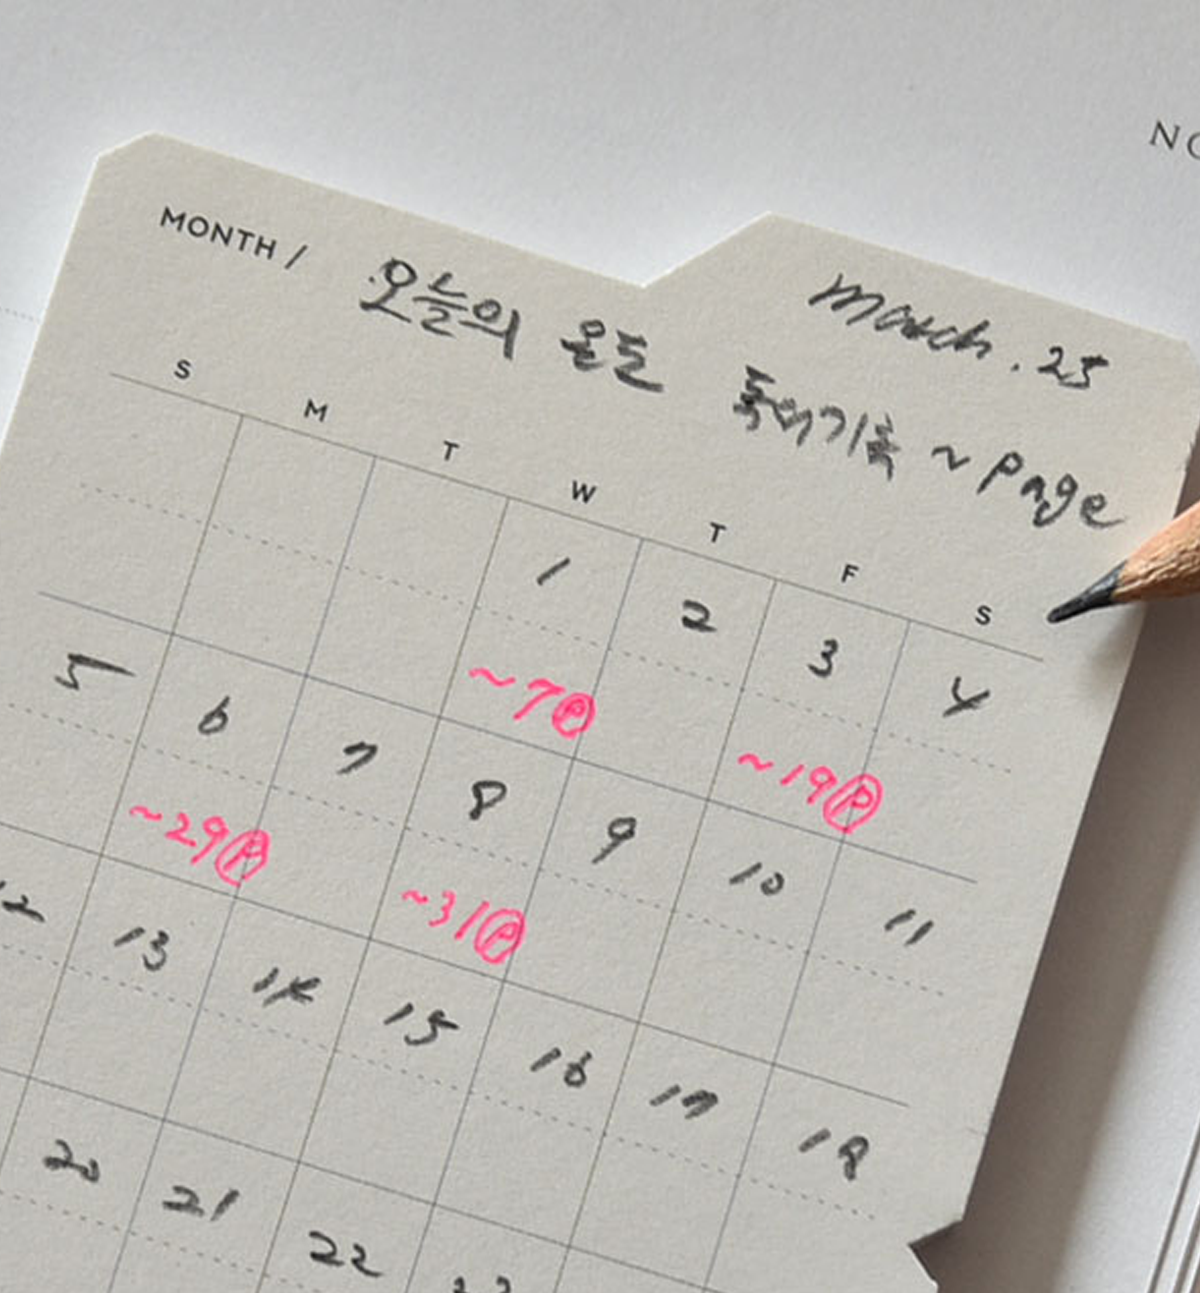 NO
MONTH / 오늘의 온도 march. 25
독서기록 ~page
S M T W T F S
1 2 3 4
~7P ~19P
5 6 7 8 9 10 11
~29P ~31P
12 13 14 15 16 17 18
20 21 22 23